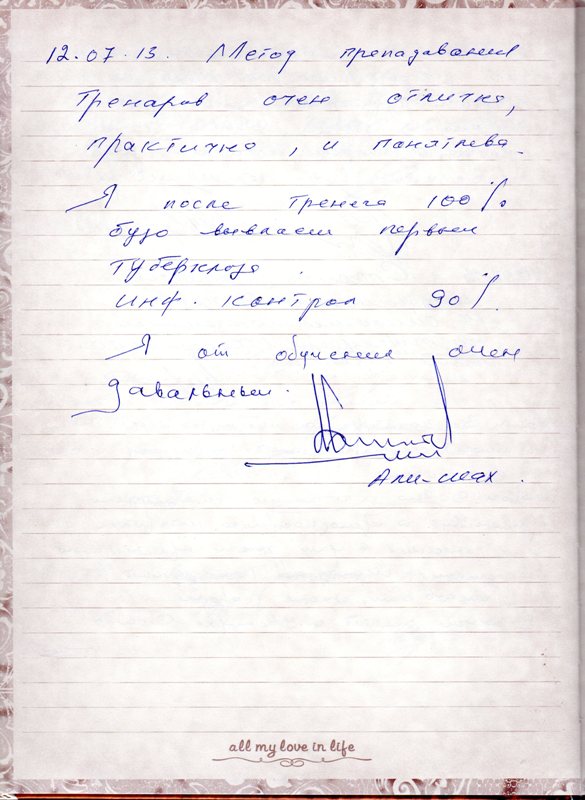 12.07.13. Метод преподавания
тренаров очен отлична,
практично, и понятлева.
Я после тренега 100%
будо выевлаем первыем
туберклоза.
инф. контрол 90%.
Я от обучения очен
давальныем.
Али-шах.
all my love in life